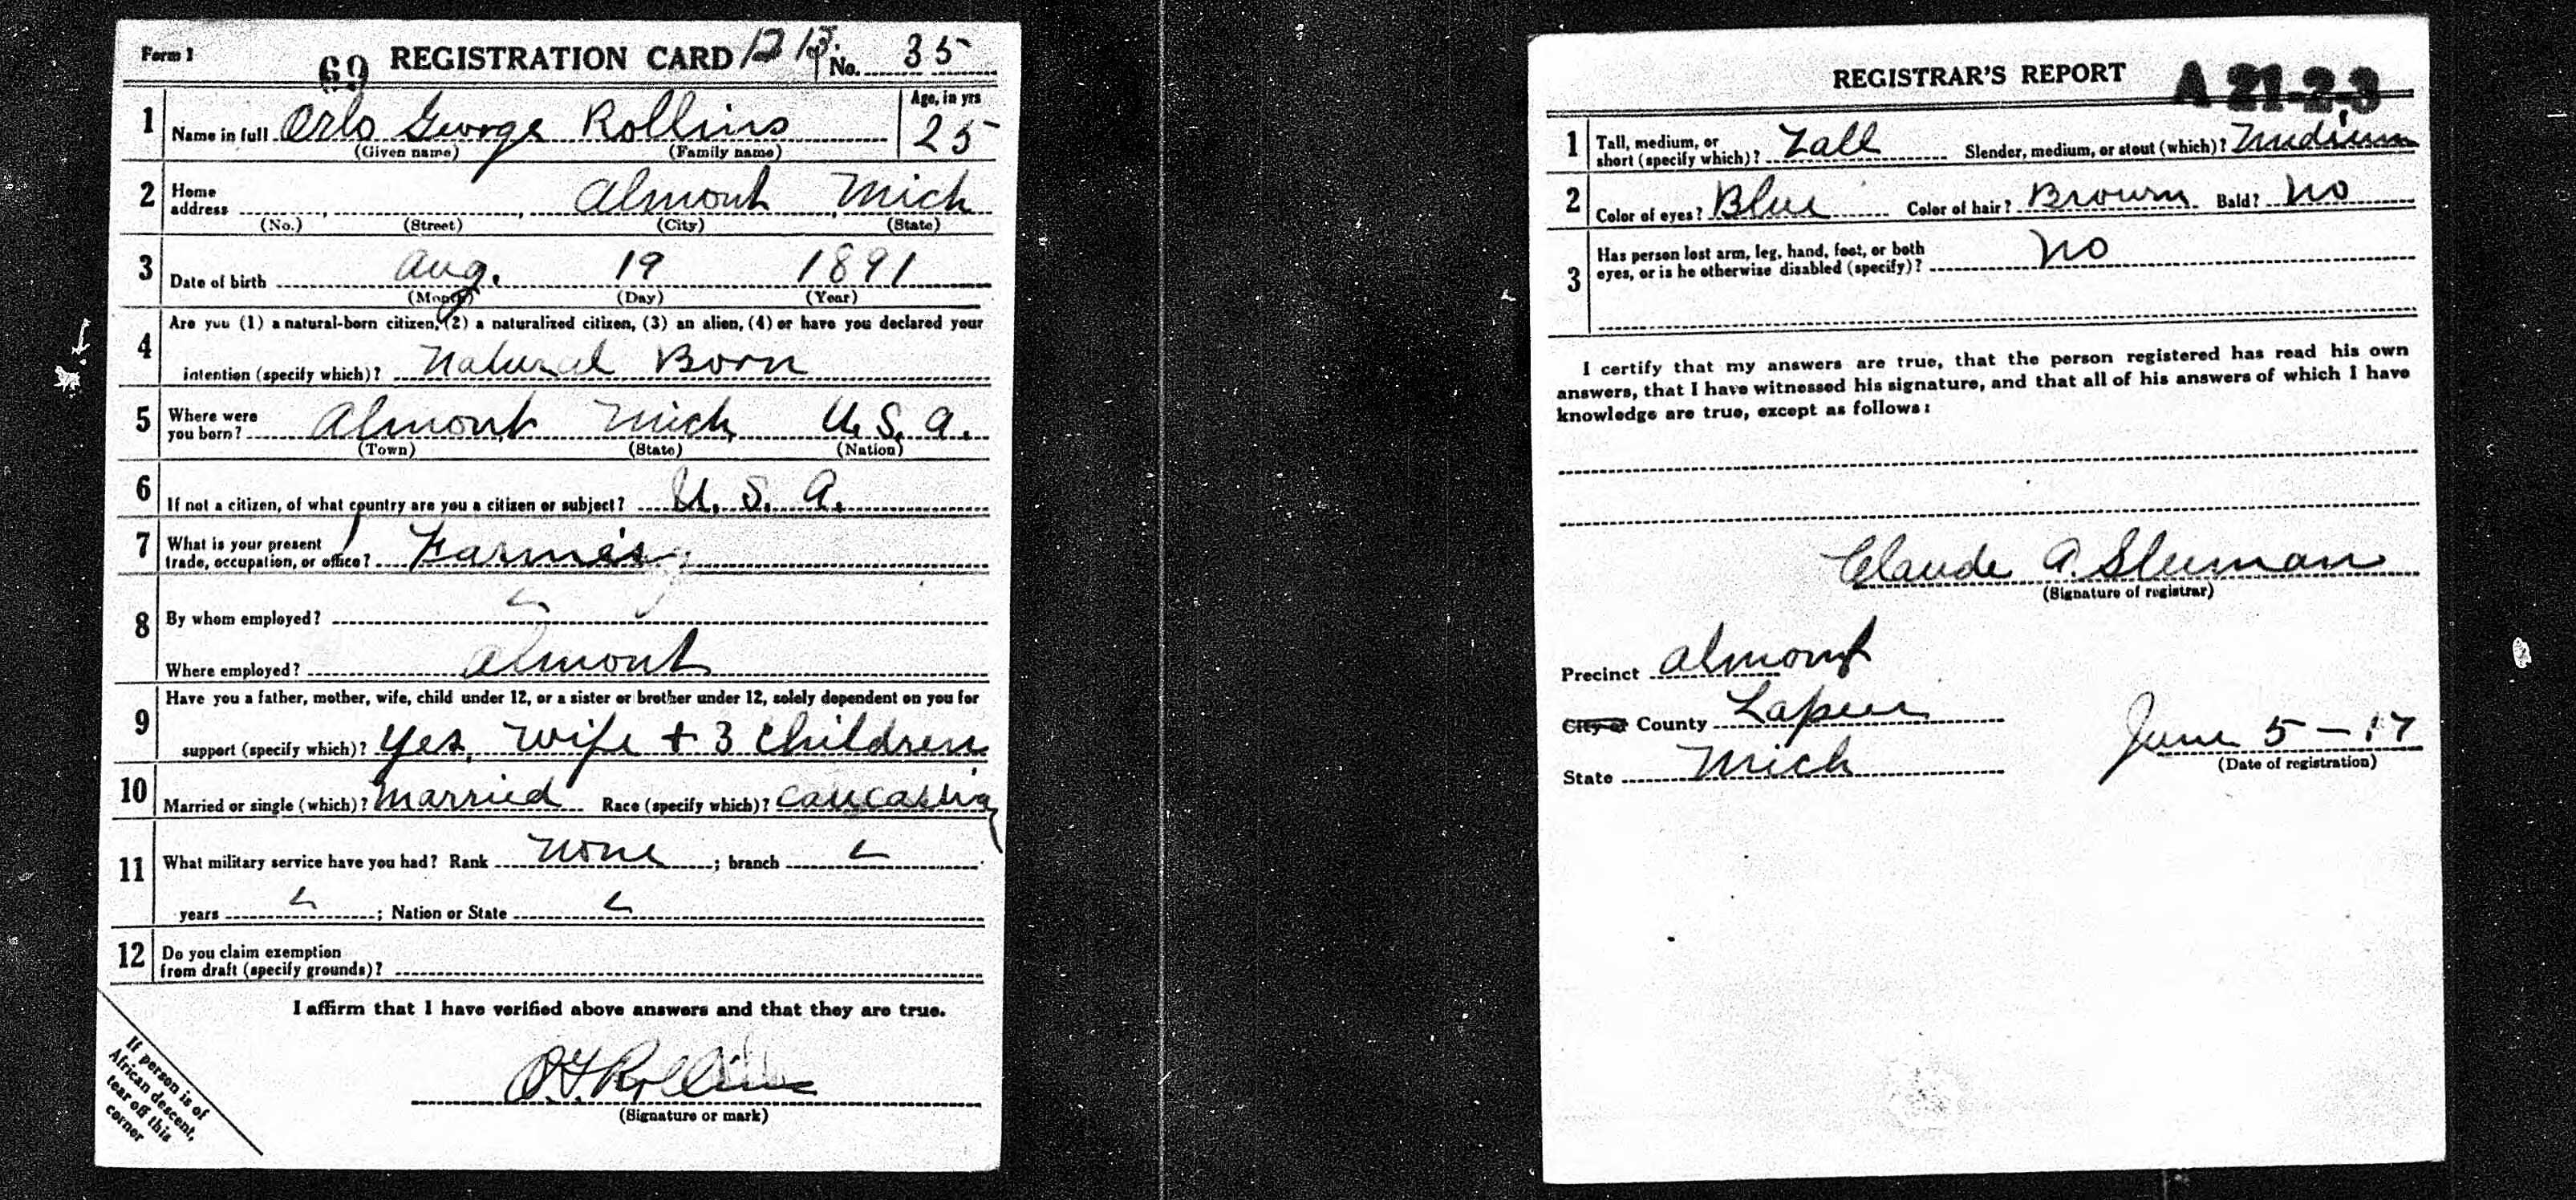 Form 1 69 REGISTRATION CARD 1213 No. 35
1 Name in full Orlo George Rollins Age, in yrs 25
(Given name) (Family name)
2 Home address Almont Mich
(No.) (Street) (City) (State)
3 Date of birth Aug. 19 1891
(Month) (Day) (Year)
4 Are you (1) a natural-born citizen, (2) a naturalized citizen, (3) an alien, (4) or have you declared your
intention (specify which)? Natural Born
5 Where were you born? Almont Mich U.S.A.
(Town) (State) (Nation)
6 If not a citizen, of what country are you a citizen or subject? U.S.A.
7 What is your present trade, occupation, or office? Farming
8 By whom employed?
Where employed? Almont
9 Have you a father, mother, wife, child under 12, or a sister or brother under 12, solely dependent on you for
support (specify which)? Yes, Wife + 3 Children
10 Married or single (which)? Married Race (specify which)? Caucasian
11 What military service have you had? Rank None ; branch
years ; Nation or State
12 Do you claim exemption
from draft (specify grounds)?
I affirm that I have verified above answers and that they are true.
O.G. Rollins
(Signature or mark)
If person is of
African descent,
tear off this
corner
REGISTRAR'S REPORT A 21-2-3
1 Tall, medium, or
short (specify which)? Tall Slender, medium, or stout (which)? Medium
2 Color of eyes? Blue Color of hair? Brown Bald? No
3 Has person lost arm, leg, hand, foot, or both
eyes, or is he otherwise disabled (specify)? No
I certify that my answers are true, that the person registered has read his own
answers, that I have witnessed his signature, and that all of his answers of which I have
knowledge are true, except as follows:
Claude A. Sleeman
(Signature of registrar)
Precinct Almont
City or County Lapeer
State Mich June 5-17
(Date of registration)